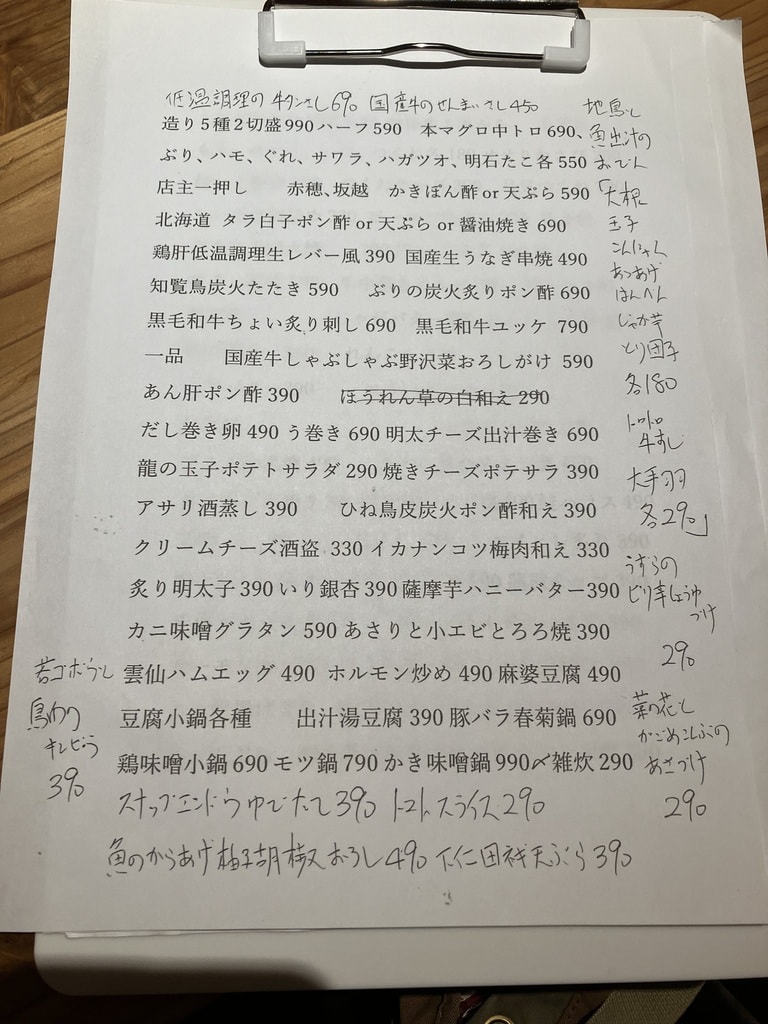 低温調理の牛タンさし690 国産牛のせんまいさし450
造り5種2切盛990ハーフ590 本マグロ中トロ690、
ぶり、ハモ、ぐれ、サワラ、ハガツオ、明石たこ各550
店主一押し 赤穂、坂越 かきぽん酢or天ぷら590
北海道 タラ白子ポン酢or天ぷらor醤油焼き690
鶏肝低温調理生レバー風390 国産生うなぎ串焼490
知覧鳥炭火たたき590 ぶりの炭火炙りポン酢690
黒毛和牛ちょい炙り刺し690 黒毛和牛ユッケ 790
一品 国産牛しゃぶしゃぶ野沢菜おろしがけ 590
あん肝ポン酢390 ほうれん草の白和え290
だし巻き卵490う巻き690明太チーズ出汁巻き690
龍の玉子ポテトサラダ290焼きチーズポテサラ390
アサリ酒蒸し390 ひね鳥皮炭火ポン酢和え390
クリームチーズ酒盗 330イカナンコツ梅肉和え330
炙り明太子390いり銀杏390薩摩芋ハニーバター390
カニ味噌グラタン 590あさりと小エビとろろ焼390
雲仙ハムエッグ490 ホルモン炒め490麻婆豆腐490
豆腐小鍋各種 出汁湯豆腐390豚バラ春菊鍋690
鶏味噌小鍋690モツ鍋790かき味噌鍋990〆雑炊290
スナップエンドウゆでたて390 トマトスライス290
魚のからあげ柚子胡椒おろし490 天ぷら390
地鳥と
魚出汁の
おでん
「大根
玉子
こんにゃく
あつあげ
はんぺん
じゃが芋
とり団子
各180
トロトロ
牛すじ
大手羽
各290」
うずらの
ピリ辛しょうゆ
づけ
290
菜の花と
かごめこんぶの
あさづけ
290
若ゴボウと
鳥肉の
キンピラ
390